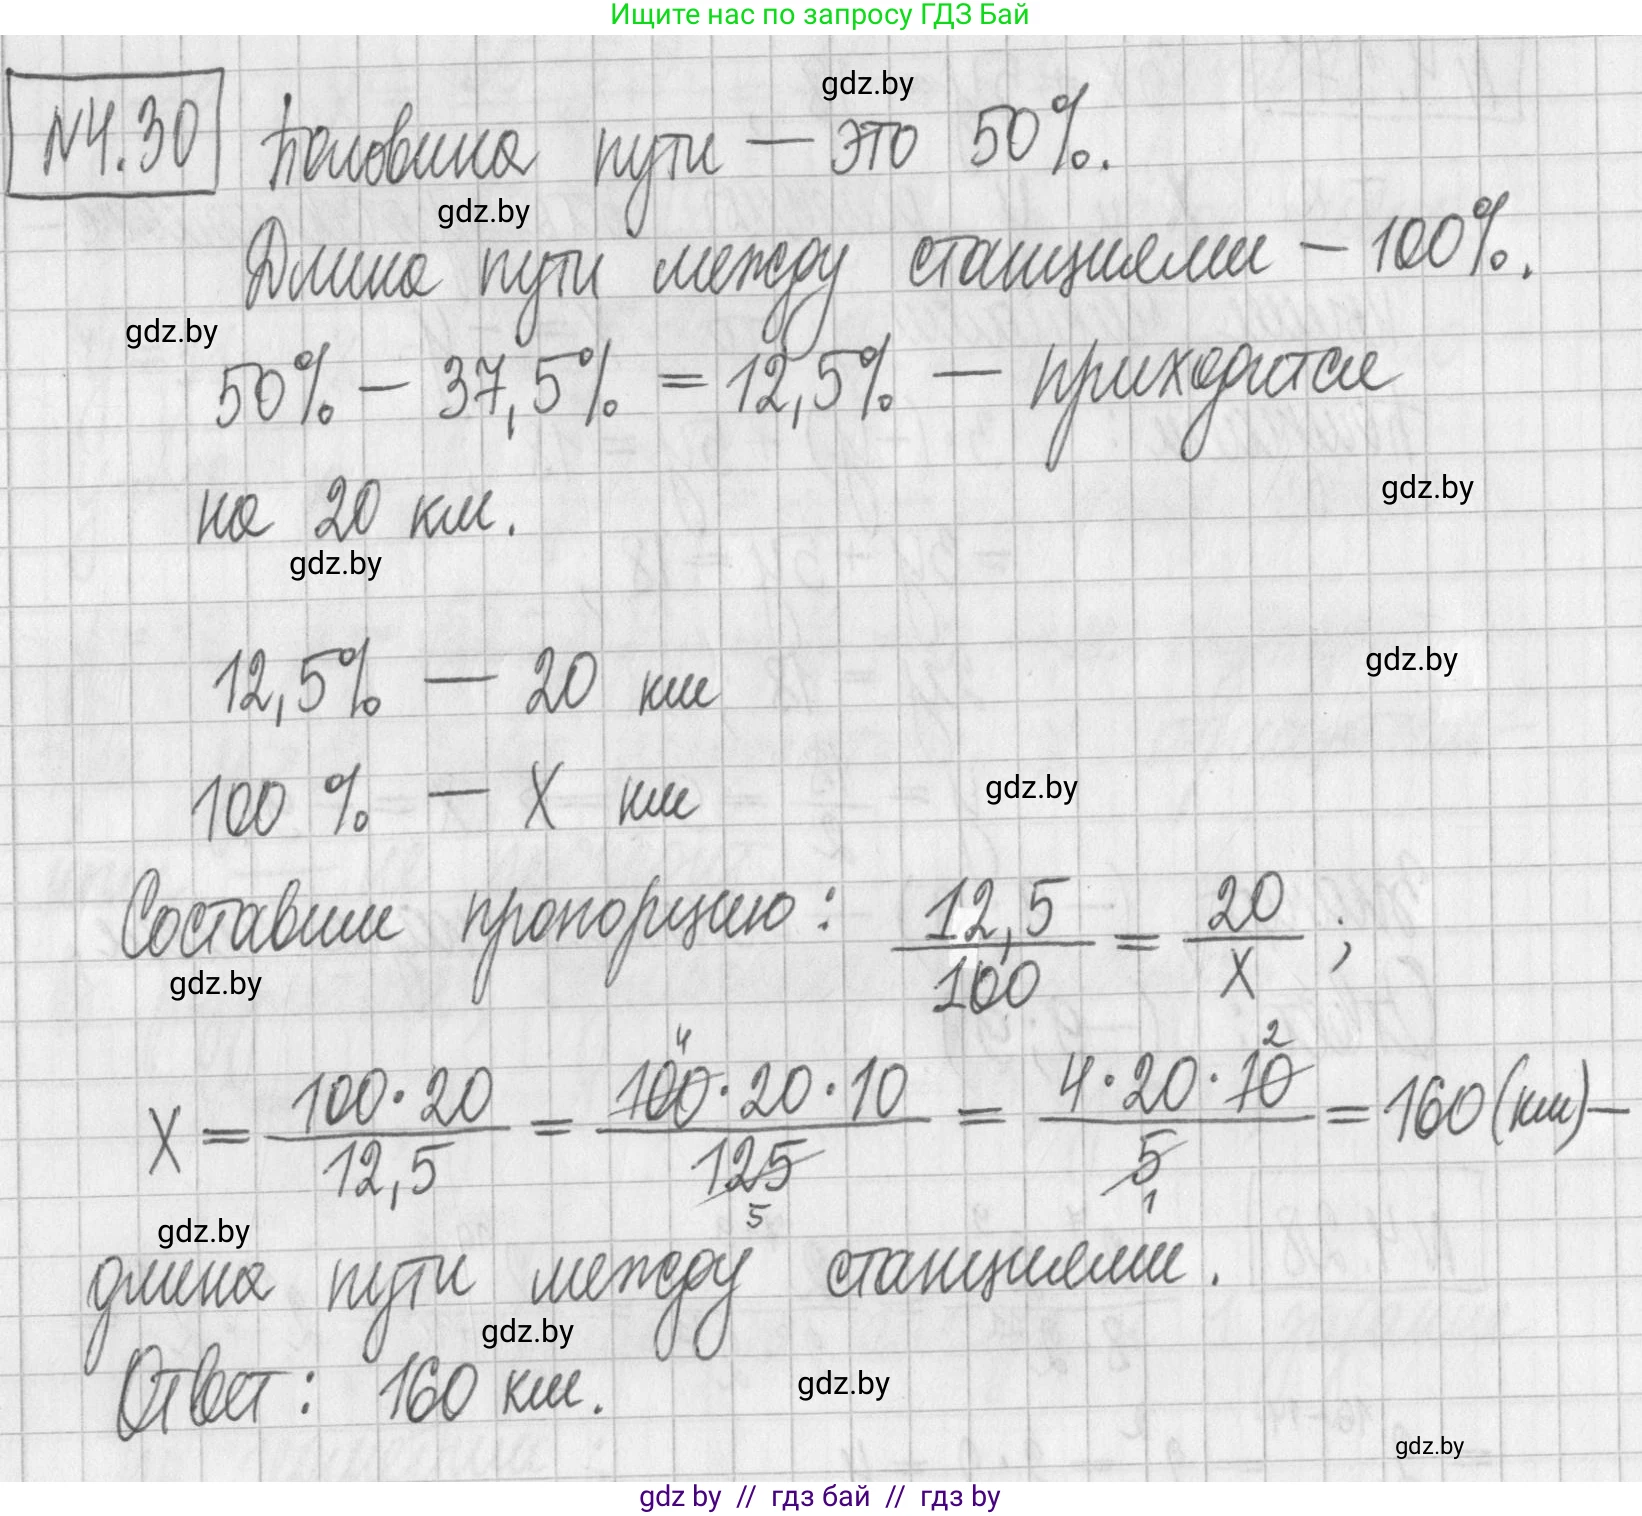 Ищите нас по запросу ГДЗ Бай
gdz.by
N4.30 Половина пути — это 50%.
gdz.by
Длина пути между станциями – 100%.
gdz.by
50% – 37,5% = 12,5% — приходится
gdz.by
на 20 км.
gdz.by
gdz.by
12,5% — 20 км
gdz.by
100 % — X км
Составим пропорцию: 12,5/100 = 20/X ;
gdz.by
X = 100·20/12,5 = 100·20·10/125 = 4·20·10/5 = 160 (км) —
4 5 2 1
gdz.by
длина пути между станциями.
gdz.by
gdz.by
Ответ: 160 км.
gdz.by
gdz by // гдз бай // гдз by